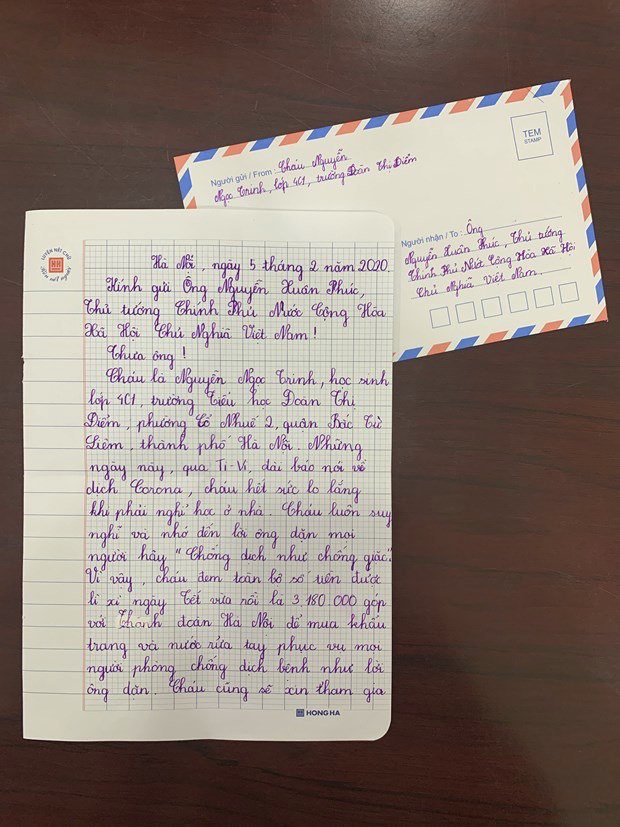 TEM
STAMP
Người gửi / From : Cháu Nguyễn
Ngọc Trinh, lớp 4C1, trường Đoàn Thị Điểm
Người nhận / To : Ông
Nguyễn Xuân Phúc, Thủ tướng
Chính Phủ Nước Cộng Hòa Xã Hội
Chủ Nghĩa Việt Nam
LUYỆN NÉT CHỮ
RÈN NẾT NGƯỜI
Hà Nội, ngày 5 tháng 2 năm 2020.
Kính gửi Ông Nguyễn Xuân Phúc,
Thủ tướng Chính Phủ Nước Cộng Hòa
Xã Hội Chủ Nghĩa Việt Nam!
Thưa ông!
Cháu là Nguyễn Ngọc Trinh, học sinh
lớp 4C1, trường Tiểu học Đoàn Thị
Điểm, phường Cổ Nhuế 2, quận Bắc Từ
Liêm, thành phố Hà Nội. Những
ngày này, qua Ti-Vi, đài báo nói về
dịch Corona, cháu hết sức lo lắng
khi phải nghỉ học ở nhà. Cháu luôn suy
nghĩ và nhớ đến lời ông dặn mọi
người hãy "Chống dịch như chống giặc".
Vì vậy, cháu đem toàn bộ số tiền được
lì xì ngày Tết vừa rồi là 3.180.000 góp
với Thành đoàn Hà Nội để mua khẩu
trang và nước rửa tay phục vụ mọi
người phòng chống dịch bệnh như lời
ông dặn. Cháu cũng sẽ xin tham gia
HONG HA